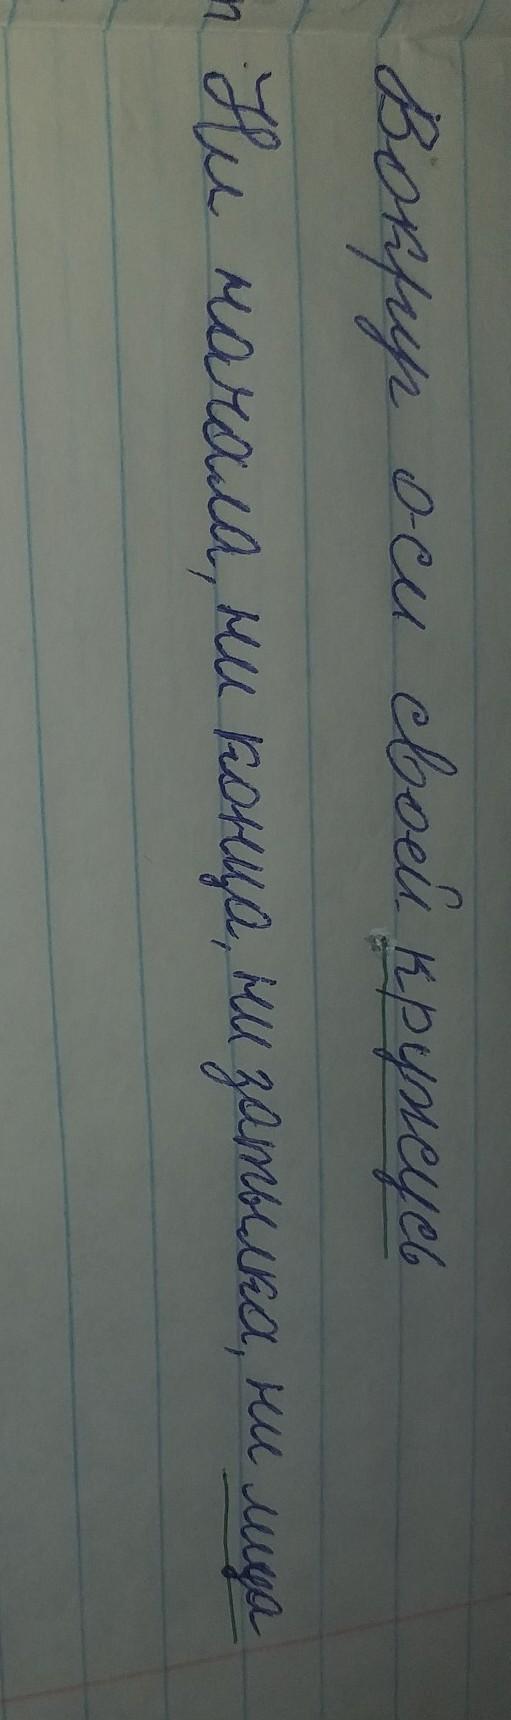 Вокруг оси своей кружусь
Ни начала, ни конца, ни затылка, ни лица